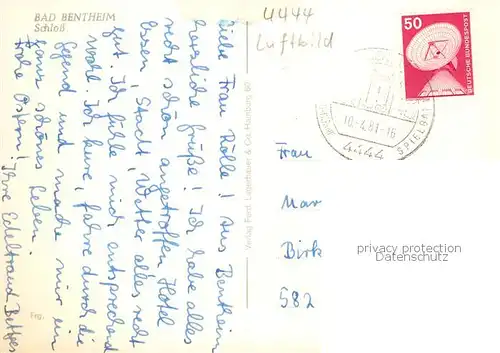 BAD BENTHEIM
Schloß
4444
Luftbild
50
DEUTSCHE BUNDESPOST
10.-4.81-16
4444
SPIELBA
Liebe Frau Rölle! Aus Bentheim
herzliche Grüße! Ich habe alles
recht schön angetroffen Hotel
Essen, Stadt, Wetter alles recht
gut. Ich fühle mich entsprechend
wohl. Ich kure, fahre durch die
Gegend und mache mir ein
ganz schönes Leben.
Frohe Ostern! Ihre Edeltraud
Verlag Ferd. Lagerbauer & Co. Hamburg 60
Frau
Mar
Birk
582
privacy protection
Datenschutz